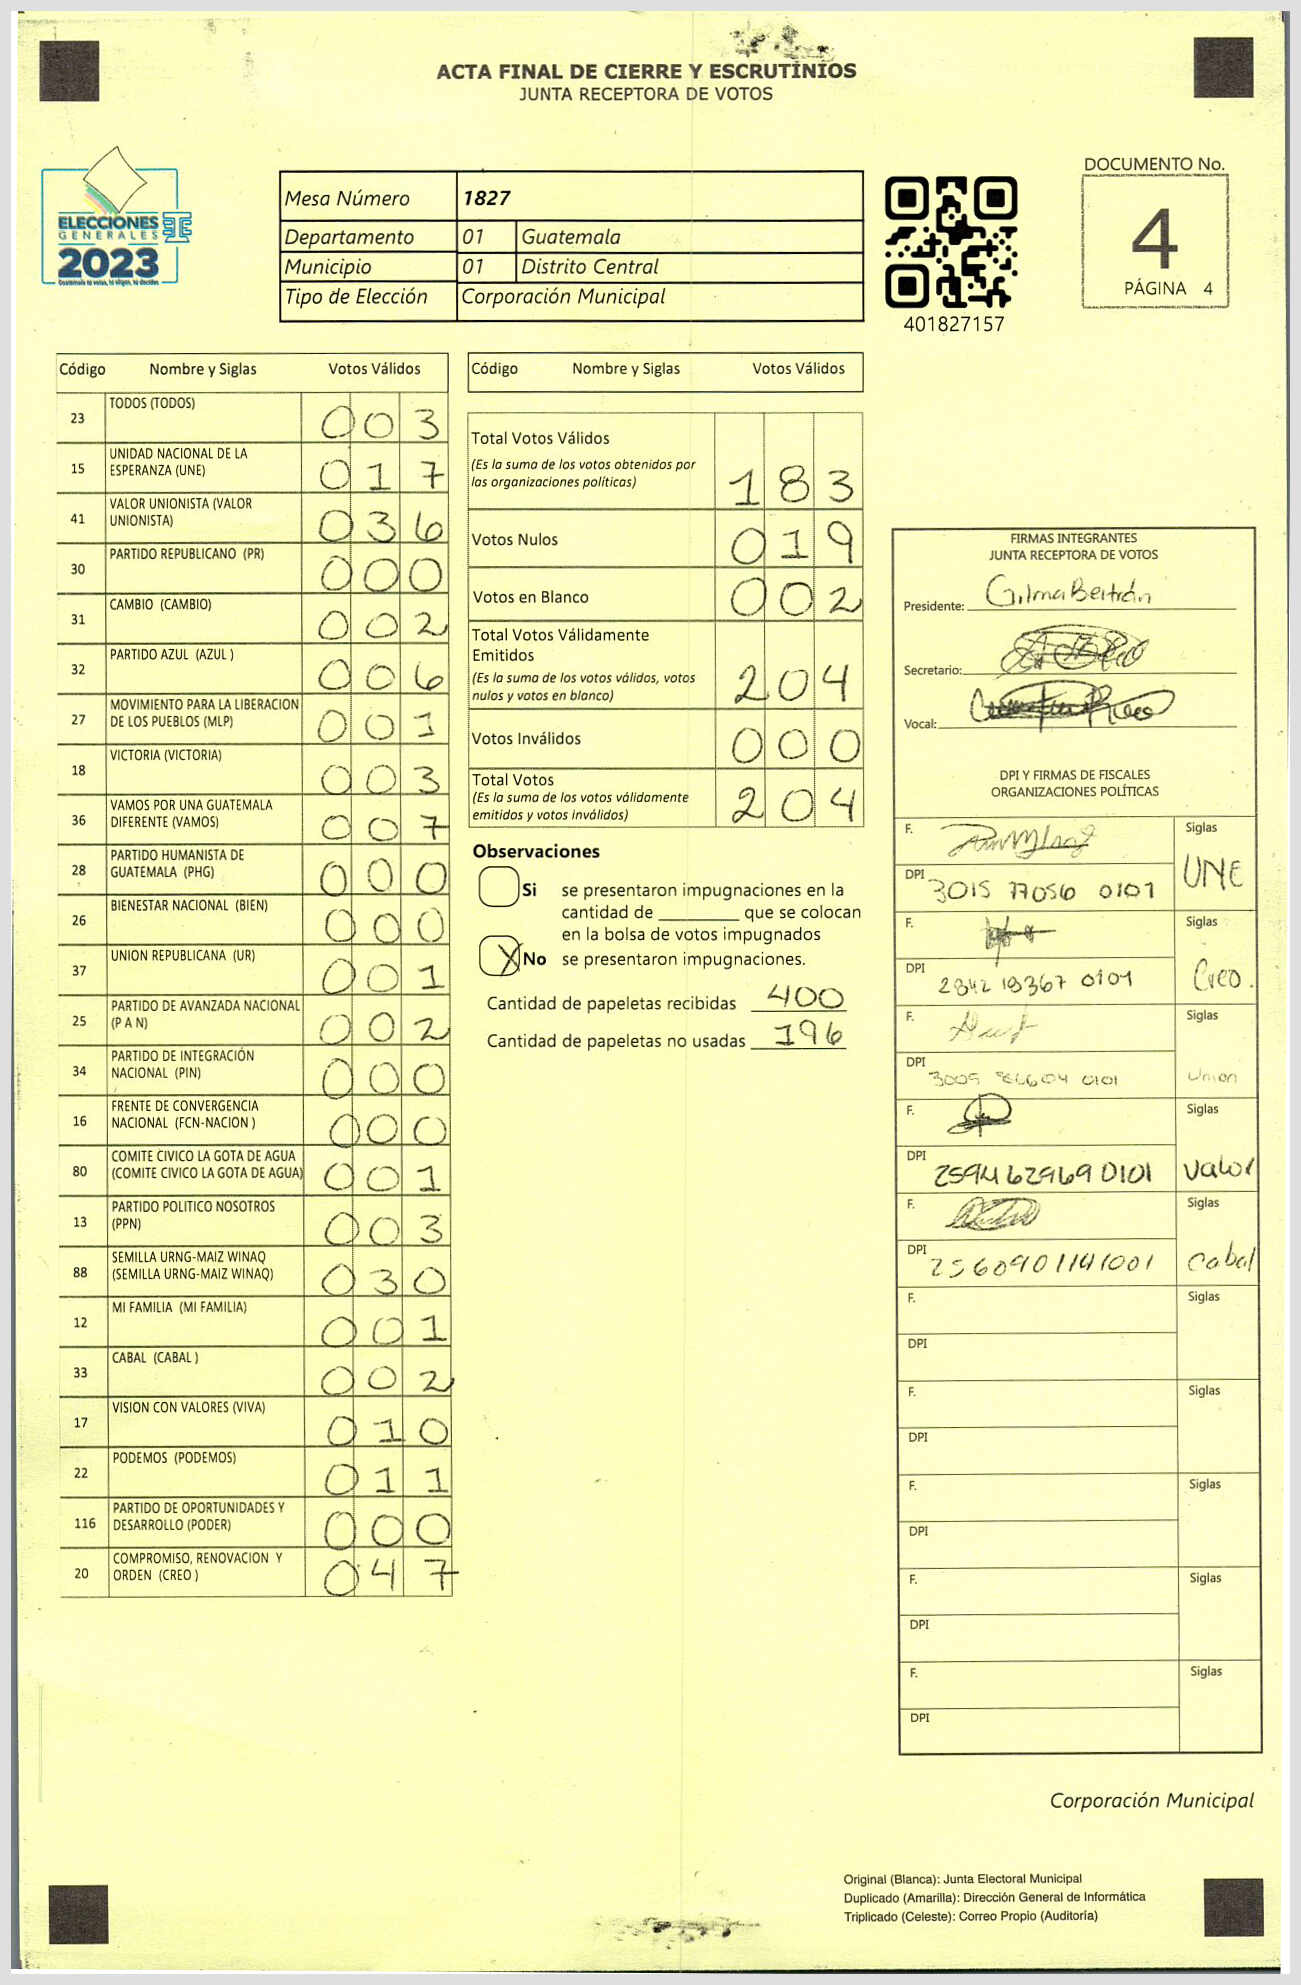 ACTA FINAL DE CIERRE Y ESCRUTINIOS
JUNTA RECEPTORA DE VOTOS
ELECCIONES
GENERALES
2023
Guatemala tu votas, tu eliges, tu decides
Mesa Número 1827
Departamento 01 Guatemala
Municipio 01 Distrito Central
Tipo de Elección Corporación Municipal
401827157
DOCUMENTO No.
4
PÁGINA 4
Código Nombre y Siglas Votos Válidos
23 TODOS (TODOS) 003
15 UNIDAD NACIONAL DE LA
ESPERANZA (UNE) 017
41 VALOR UNIONISTA (VALOR
UNIONISTA) 036
30 PARTIDO REPUBLICANO (PR) 000
31 CAMBIO (CAMBIO) 002
32 PARTIDO AZUL (AZUL ) 006
27 MOVIMIENTO PARA LA LIBERACION
DE LOS PUEBLOS (MLP) 001
18 VICTORIA (VICTORIA) 003
36 VAMOS POR UNA GUATEMALA
DIFERENTE (VAMOS) 007
28 PARTIDO HUMANISTA DE
GUATEMALA (PHG) 000
26 BIENESTAR NACIONAL (BIEN) 000
37 UNION REPUBLICANA (UR) 001
25 PARTIDO DE AVANZADA NACIONAL
(P A N) 002
34 PARTIDO DE INTEGRACIÓN
NACIONAL (PIN) 000
16 FRENTE DE CONVERGENCIA
NACIONAL (FCN-NACION ) 000
80 COMITE CIVICO LA GOTA DE AGUA
(COMITE CIVICO LA GOTA DE AGUA) 001
13 PARTIDO POLITICO NOSOTROS
(PPN) 003
88 SEMILLA URNG-MAIZ WINAQ
(SEMILLA URNG-MAIZ WINAQ) 030
12 MI FAMILIA (MI FAMILIA) 001
33 CABAL (CABAL ) 002
17 VISION CON VALORES (VIVA) 010
22 PODEMOS (PODEMOS) 011
116 PARTIDO DE OPORTUNIDADES Y
DESARROLLO (PODER) 000
20 COMPROMISO, RENOVACION Y
ORDEN (CREO ) 047
Código Nombre y Siglas Votos Válidos
Total Votos Válidos
(Es la suma de los votos obtenidos por
las organizaciones políticas) 183
Votos Nulos 019
Votos en Blanco 002
Total Votos Válidamente
Emitidos
(Es la suma de los votos válidos, votos
nulos y votos en blanco) 204
Votos Inválidos 000
Total Votos
(Es la suma de los votos válidamente
emitidos y votos inválidos) 204
Observaciones
Si se presentaron impugnaciones en la
cantidad de ________ que se colocan
en la bolsa de votos impugnados
X No se presentaron impugnaciones.
Cantidad de papeletas recibidas 400
Cantidad de papeletas no usadas 196
FIRMAS INTEGRANTES
JUNTA RECEPTORA DE VOTOS
Presidente: Gilma Beltrán
Secretario:
Vocal:
DPI Y FIRMAS DE FISCALES
ORGANIZACIONES POLÍTICAS
F. Siglas
DPI 3015 77056 0101 UNE
F. Siglas
DPI 2342 19367 0101 Creo.
F. Siglas
DPI 0101 Union
F. Siglas
DPI 2594 62969 0101 Valor
F. Siglas
DPI 2560901141001 Cabal
F. Siglas
DPI
F. Siglas
DPI
F. Siglas
DPI
F. Siglas
DPI
F. Siglas
DPI
Corporación Municipal
Original (Blanca): Junta Electoral Municipal
Duplicado (Amarilla): Dirección General de Informática
Triplicado (Celeste): Correo Propio (Auditoría)